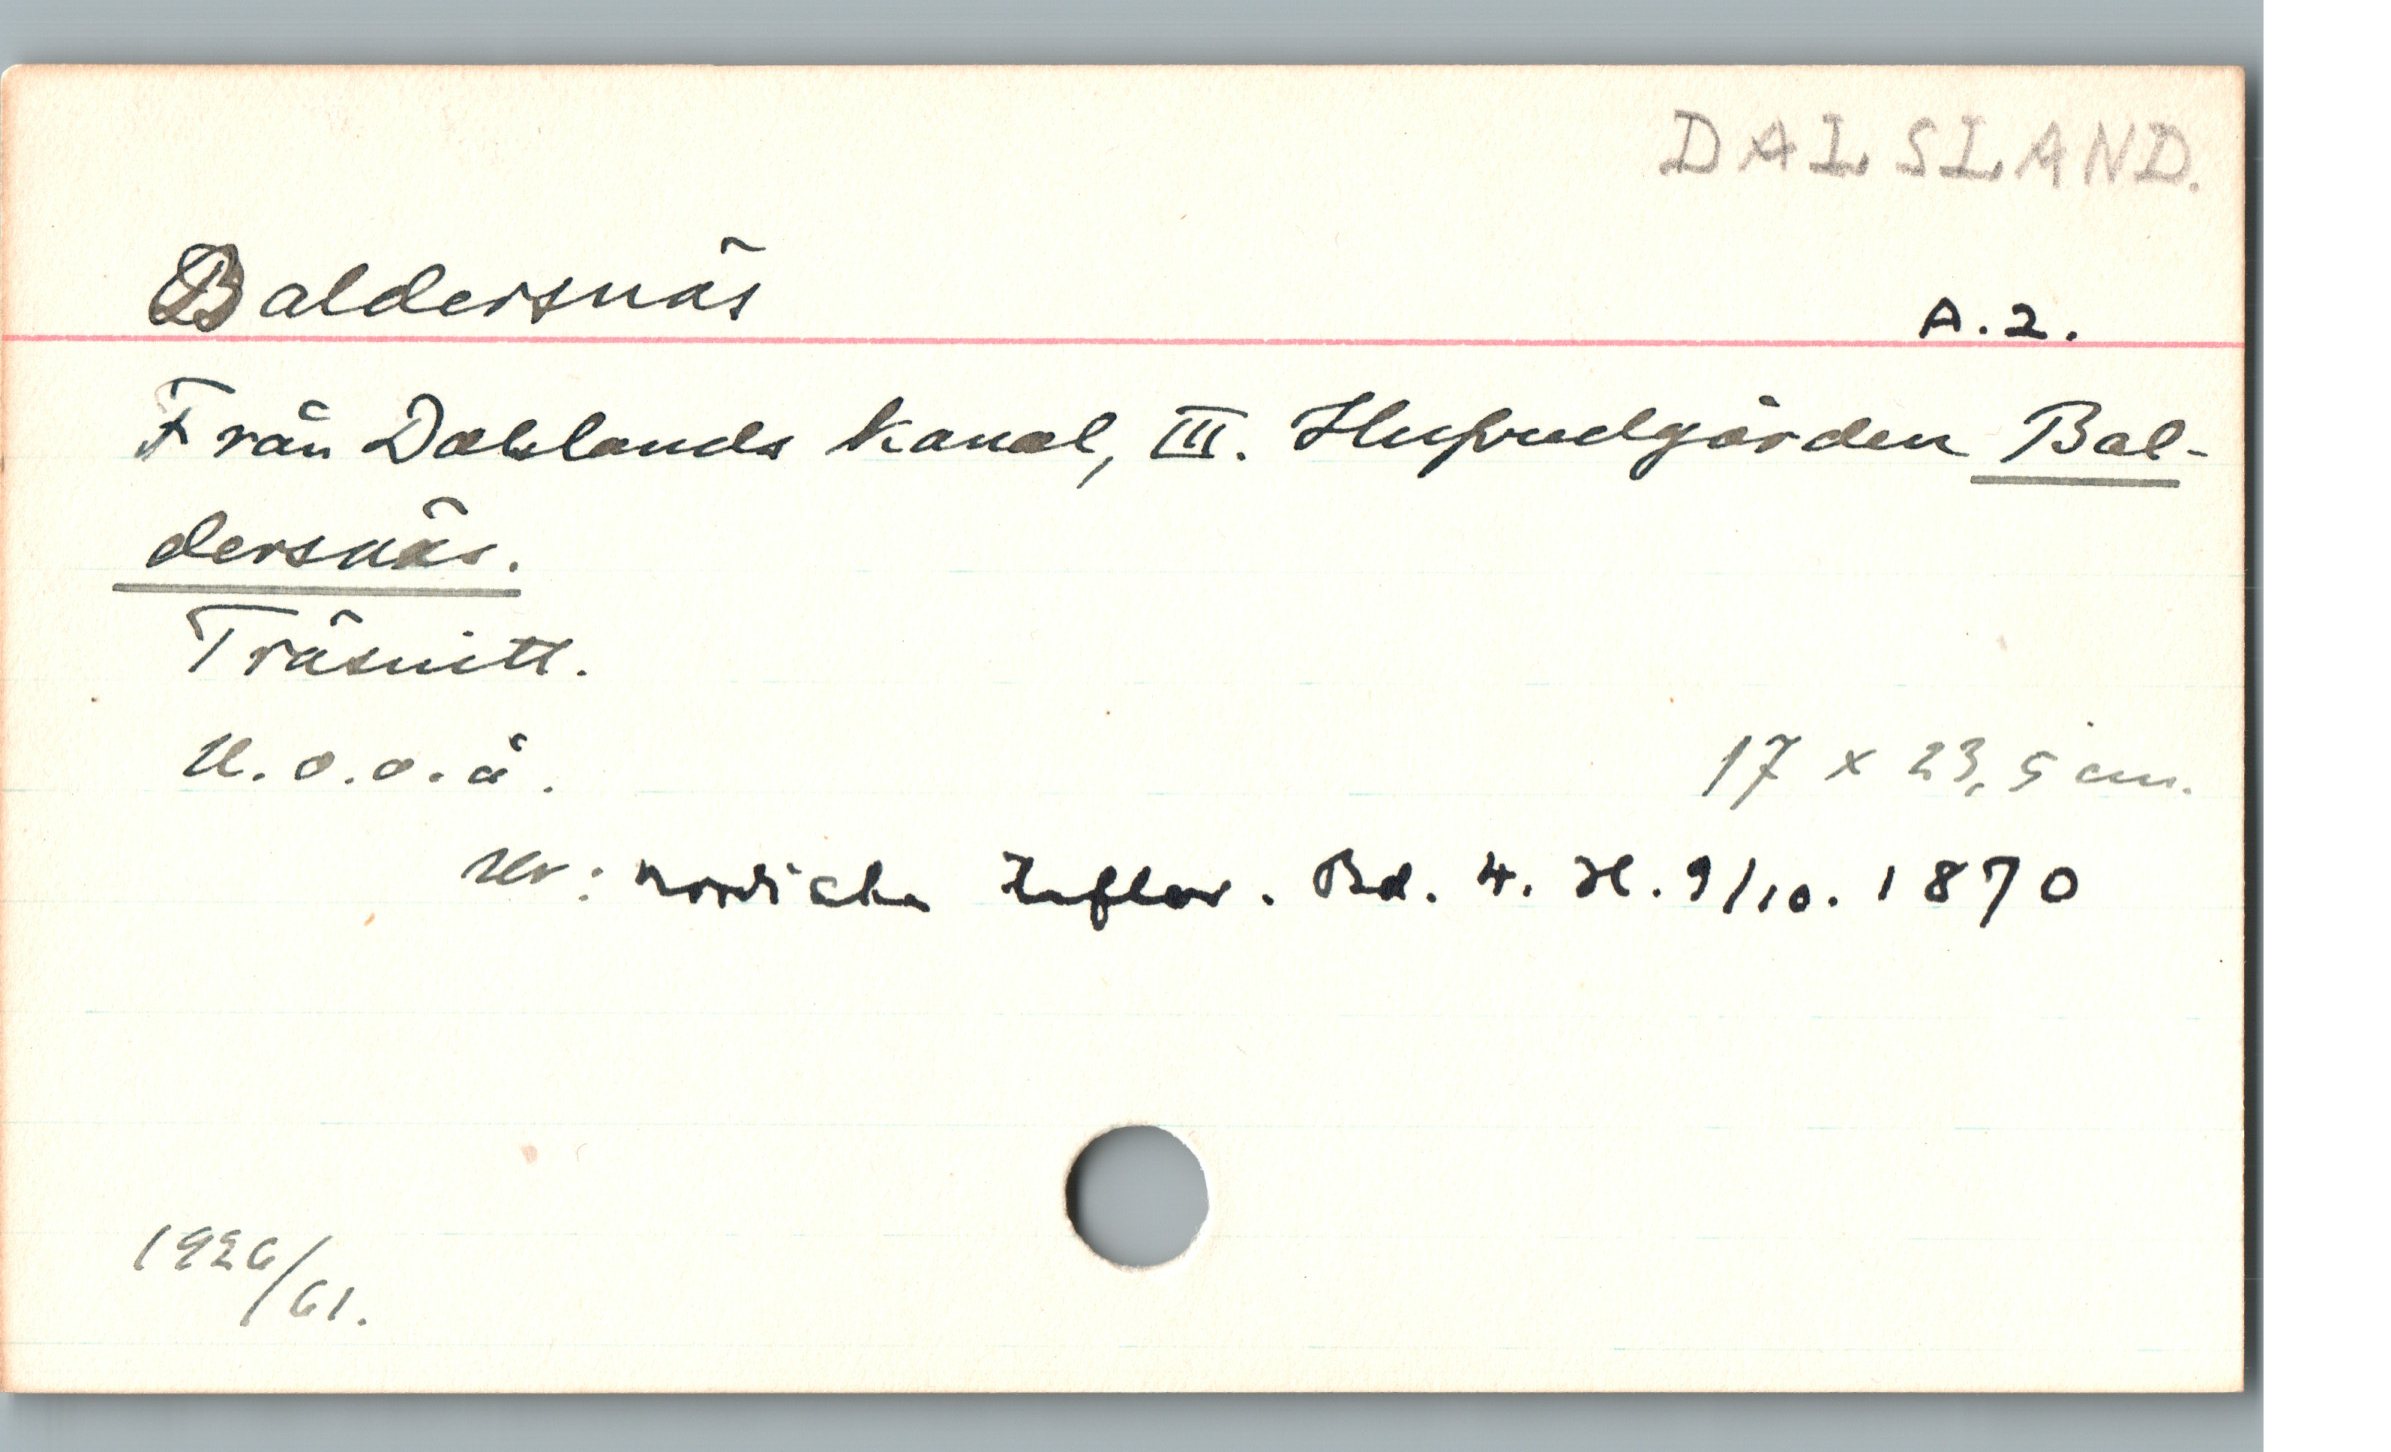 DALSLAND.
Baldersnäs
A.2.
Från Dalslands kanal, III. Hufvudgården Bal-
dersnäs.
Träsnitt.
U.o.o.å.
17 x 23,5 cm.
Ur: Nordiska taflor. Bd. 4. H. 9/10. 1870
1926/61.